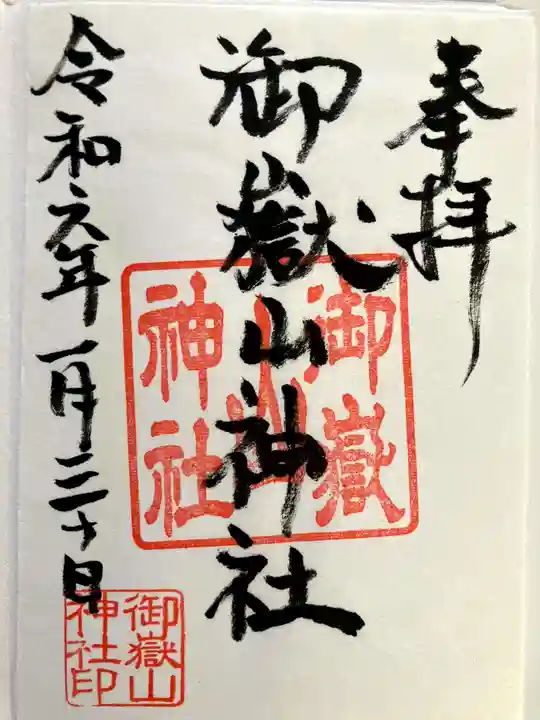 奉拝
御嶽山神社
御嶽山神社
令和六年一月三十日
御嶽山神社印